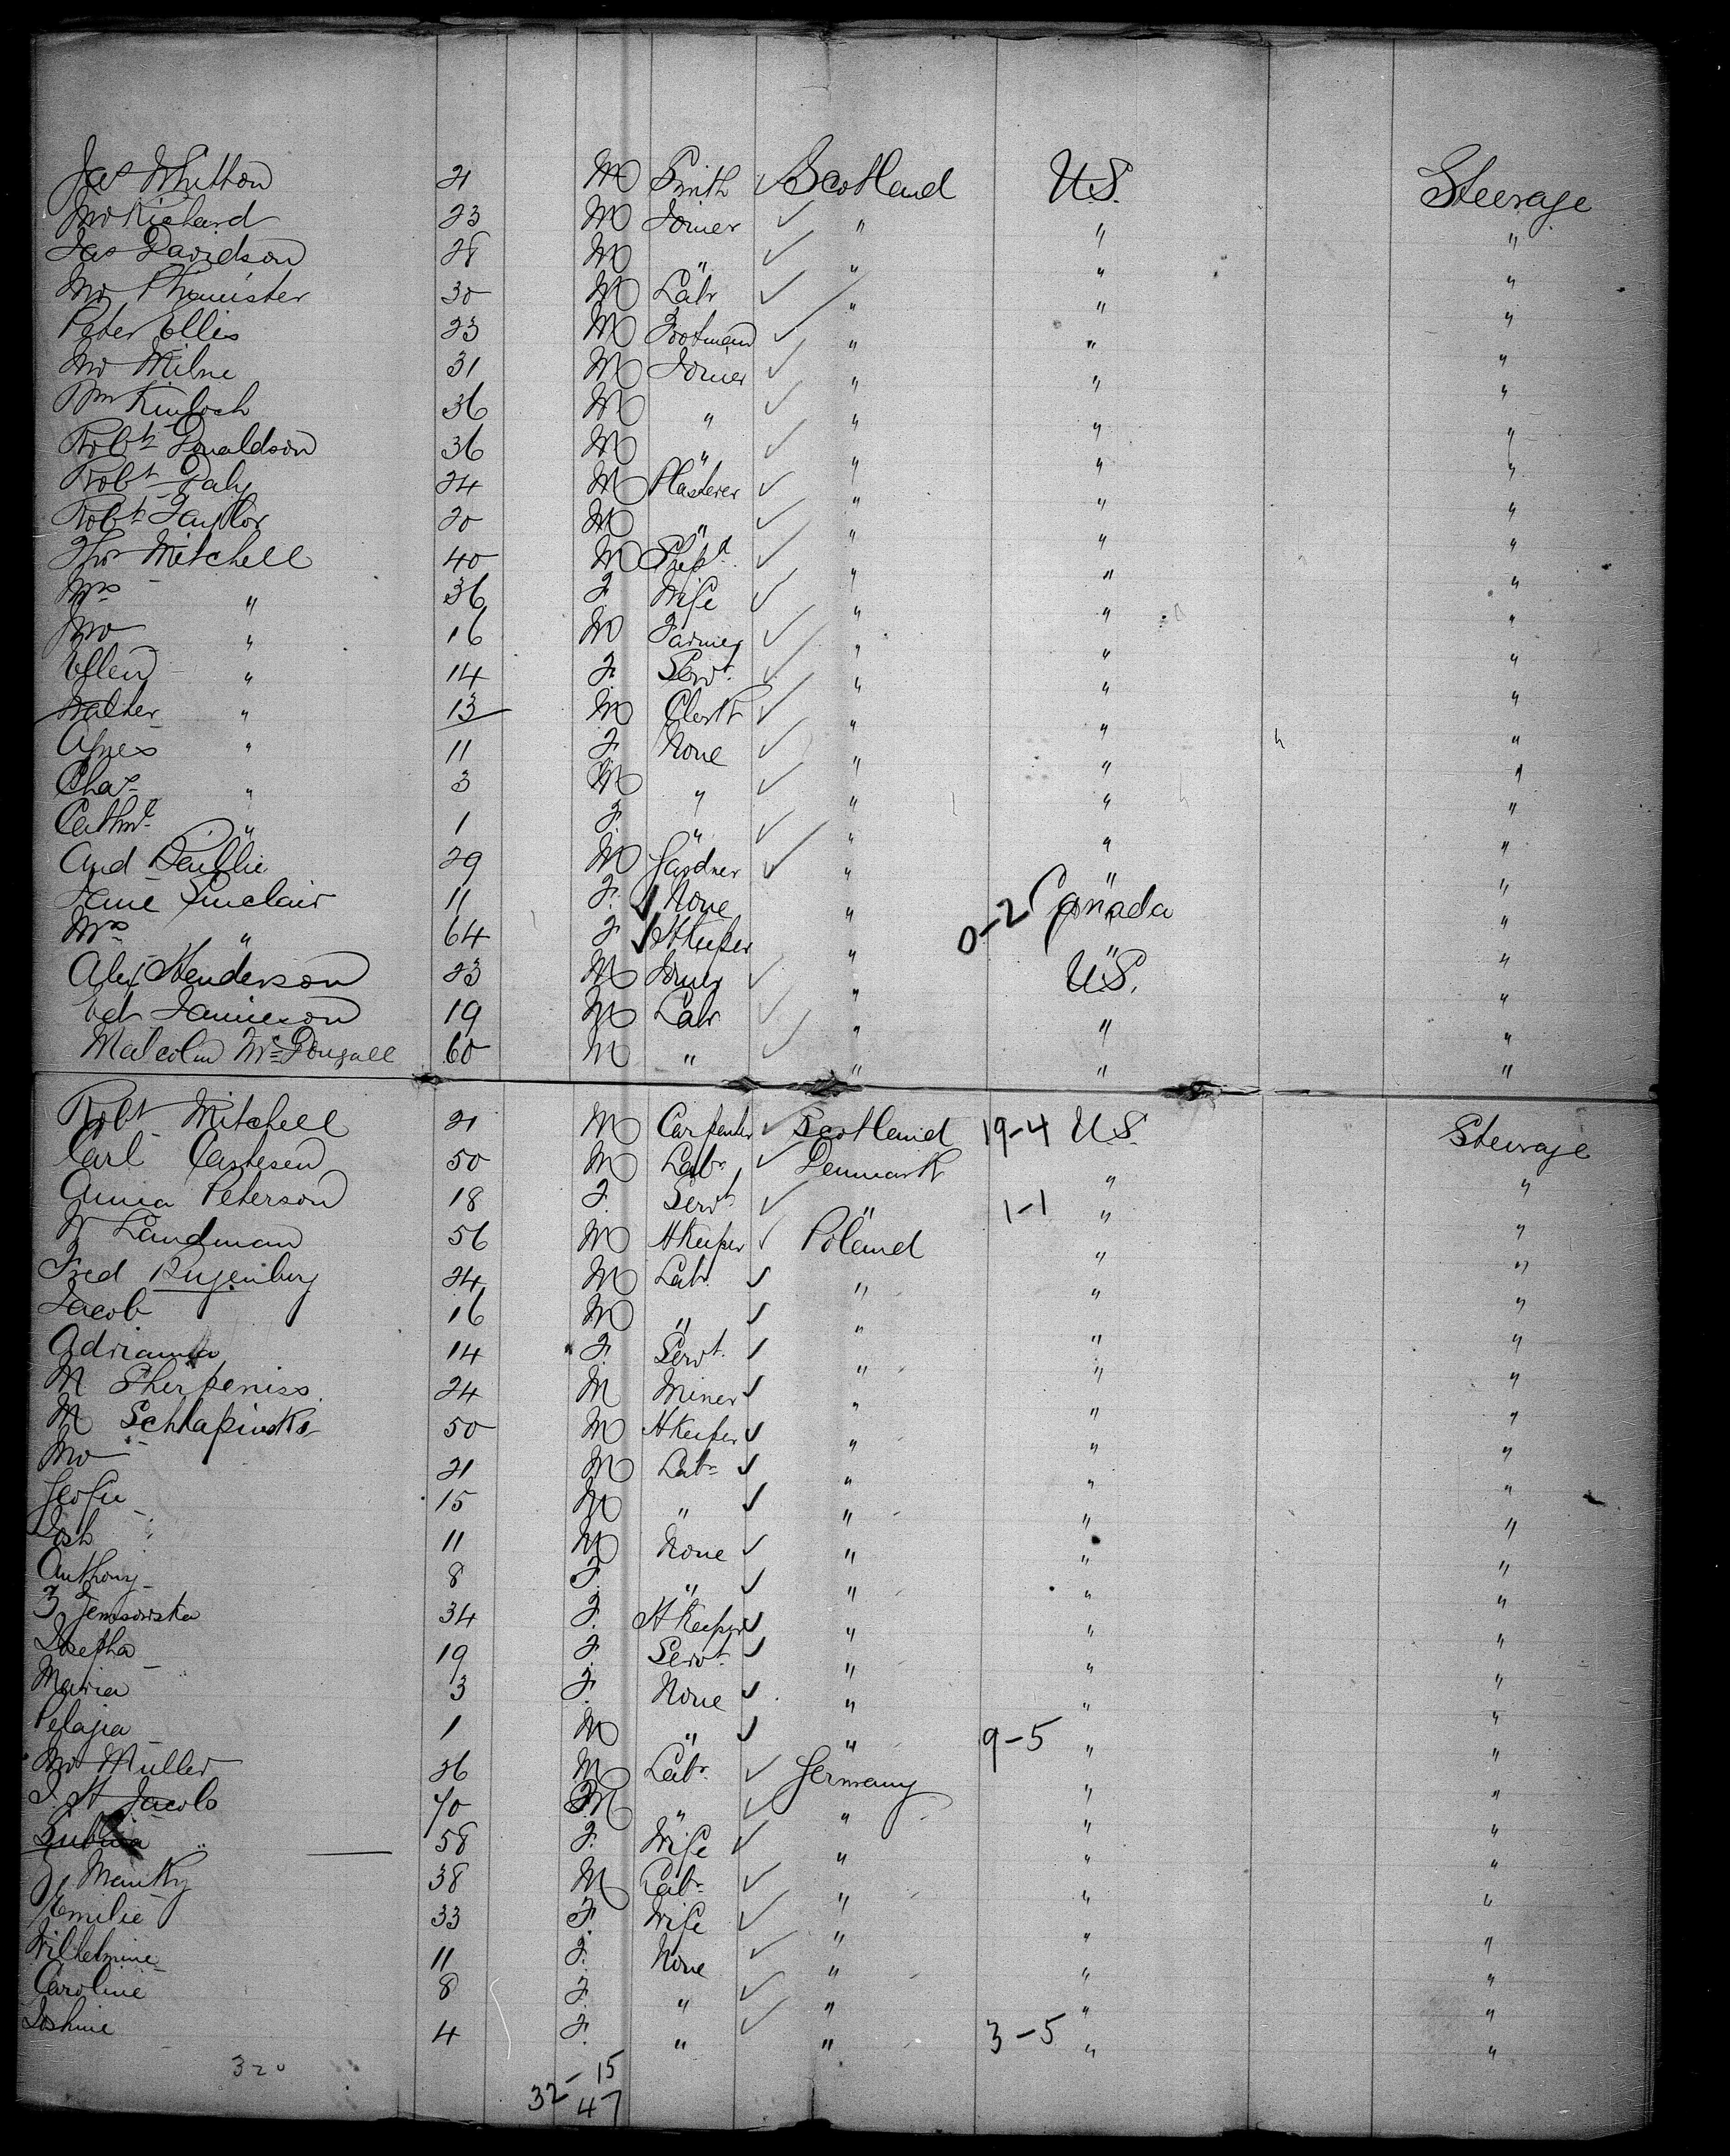 Jas Whitton 21 M Smith ✓ Scotland U.S. Steerage
Jno Richard 23 M Joiner ✓ " " "
Jas Davidson 28 M " ✓ " " "
Jno Phemister 30 M Labr ✓ " " "
Peter Ellis 23 M Footman ✓ " " "
Jno Milne 31 M Joiner ✓ " " "
Wm Kinloch 36 M " ✓ " " "
Robt Donaldson 36 M " ✓ " " "
Robt Daly 24 M Plasterer ✓ " " "
Robt Taylor 20 M " ✓ " " "
Thos Mitchell 40 M Shepd ✓ " " "
Mrs " 36 F Wife ✓ " " "
Jno " 16 M Farmer ✓ " " "
Ellen " 14 F Servt ✓ " " "
Walter " 13 M Clerk ✓ " " "
Agnes " 11 F None ✓ " " "
Chas " 3 M " ✓ " " "
Cathne " 1 F " ✓ " " "
And Baillie 29 M Gardner ✓ " " "
Jane Sinclair 11 F ✓ None " 0-2 Canada "
Mrs " 64 F ✓ HKeeper " " "
Alex Henderson 23 M Joiner ✓ " U.S. "
Jamieson 19 M Labr ✓ " " "
Malcolm McDougall 60 M " ✓ " " "
Robt Mitchell 21 M Carpenter ✓ Scotland 19-4 U.S. Steerage
Carl Castesen 50 M Labr ✓ Denmark " "
Anna Peterson 18 F Servt ✓ " 1-1 " "
W Landman 56 M HKeeper ✓ Poland " "
Fred Rugenberg 24 M Labr ✓ " " "
Jacob 16 M " ✓ " " "
Adrianna 14 F Servt ✓ " " "
M Sherpeniss 24 M Miner ✓ " " "
M Schlapinski 50 M HKeeper ✓ " " "
Jno " 21 M Labr ✓ " " "
15 M " ✓ " " "
Josh " 11 M None ✓ " " "
Anthony 8 F " ✓ " " "
34 F HKeeper ✓ " " "
Josepha 19 F Servt ✓ " " "
Maria 3 F None ✓ " " "
Pelagia 1 M " ✓ " 9-5 " "
Jno Muller 36 M Labr ✓ Germany " "
J. H Jacobs 70 M " ✓ " " "
" 58 F Wife ✓ " " "
Manky 38 M Labr ✓ " " "
Emilie 33 F Wife ✓ " " "
Wilhelmine 11 F None ✓ " " "
Caroline 8 F " ✓ " " "
4 F " ✓ " 3-5 " "
320
32-15
47